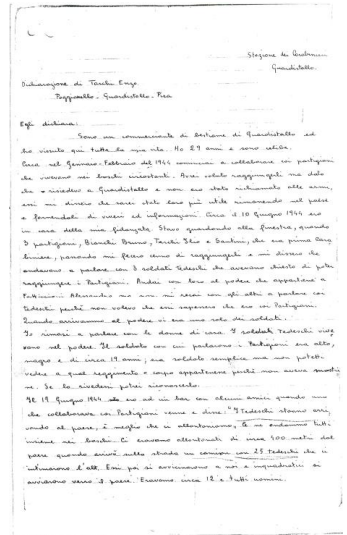 Stazione dei Carabinieri
Guardistallo.
Dichiarazione di Tarchi Enzo
Poggiarello - Guardistallo - Pisa
Egli dichiara:
Sono un commerciante di bestiame di Guardistallo ed
ho vissuto qui tutta la mia vita. Ho 29 anni e sono celibe.
Circa nel Gennaio-Febbraio del 1944 cominciai a collaborare coi partigiani
che vivevano nei boschi circostanti. Avrei voluto raggiungerli ma dato
che risiedevo a Guardistallo e non ero stato richiamato alle armi,
essi mi dissero che sarei stato loro più utile rimanendo nel paese
e fornendoli di viveri ed informazioni. Circa il 10 Giugno 1944 ero
in casa della mia fidanzata. Stavo guardando alla finestra, quando
3 partigiani, Bianchi Bruno, Tarchi Elio e Santini, che era prima Cara
biniere, passando mi fecero cenno di raggiungerli e mi dissero che
andavano a parlare con 2 soldati Tedeschi che avevano chiesto di poter
raggiungere i Partigiani. Andai con loro al podere che appartiene a
Alessandro ma non mi recai con gli altri a parlare coi
tedeschi perchè non volevo che essi sapessero che ero coi Partigiani.
Quando arrivammo al podere vi era uno solo dei soldati.
Io rimasi a parlare con le donne di casa. I soldati Tedeschi vive
vano nel podere. Il soldato con cui parlarono i Partigiani era alto,
magro e di circa 19 anni, era soldato semplice ma non potetti
vedere a qual reggimento o corpo appartenesse perchè non aveva mostri
ne. Se lo rivedessi potrei riconoscerlo.
Il 19 Giugno 1944 ero ad un bar con alcuni amici quando uno
che collaborava coi Partigiani venne e disse: "I Tedeschi stanno arri
vando al paese, è meglio che ci allontaniamo, e ne andammo tutti
insieme nei boschi. Ci eravamo allontanati di circa 400 metri dal
paese quando arrivò sulla strada un camion con 25 tedeschi che ci
intimarono l'alt. Essi poi si avvicinarono a noi e inquadratici ci
avviarono verso il paese. Eravamo circa 12 e tutti uomini.